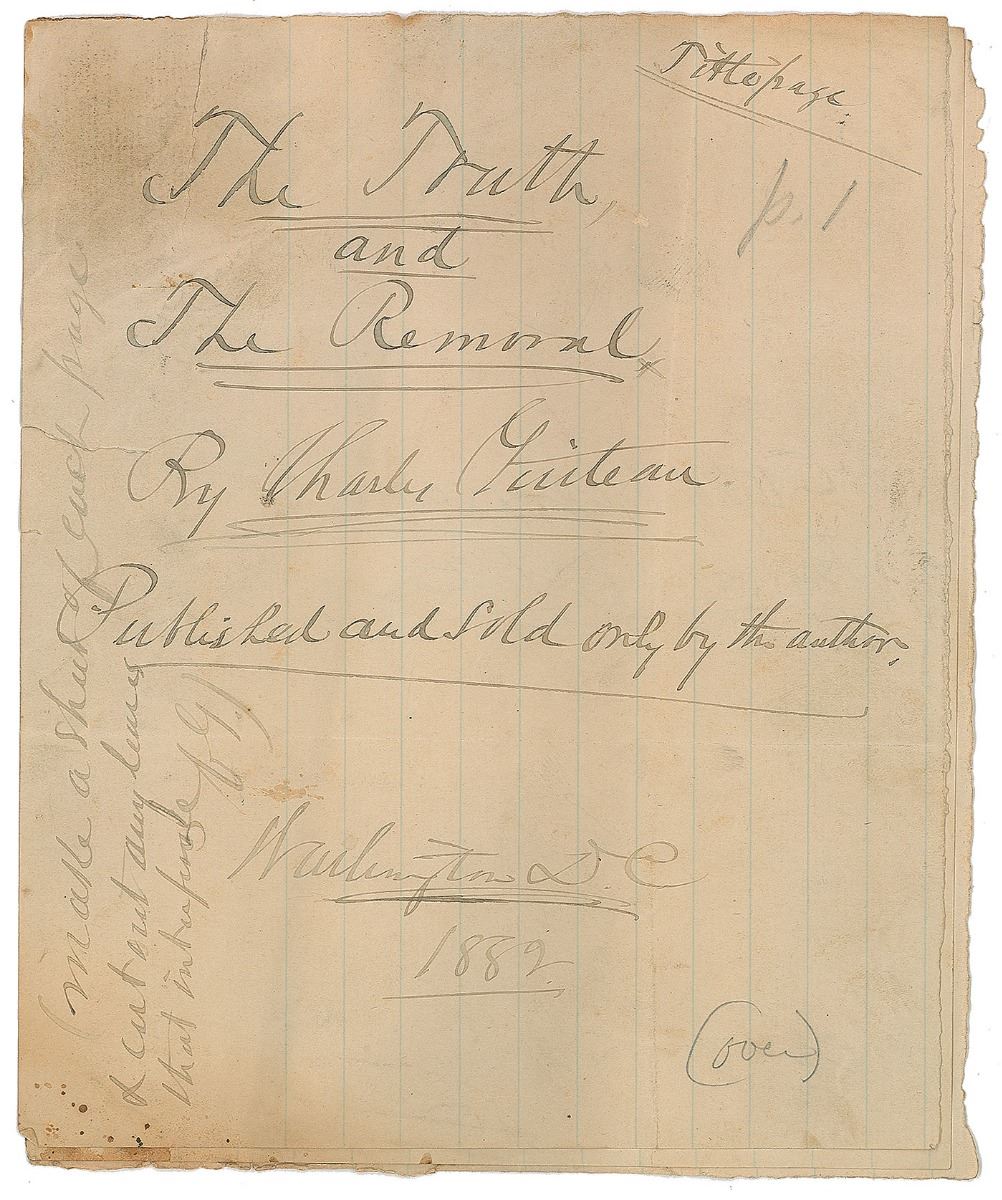 Tittlepage.
p. 1
The Truth,
and
The Removal,
x
By Charles Guiteau.
Published and Sold only by the author.
Washington D.C.
1882
(over)
(make a short of each page
& cut out any leaves
that interfere